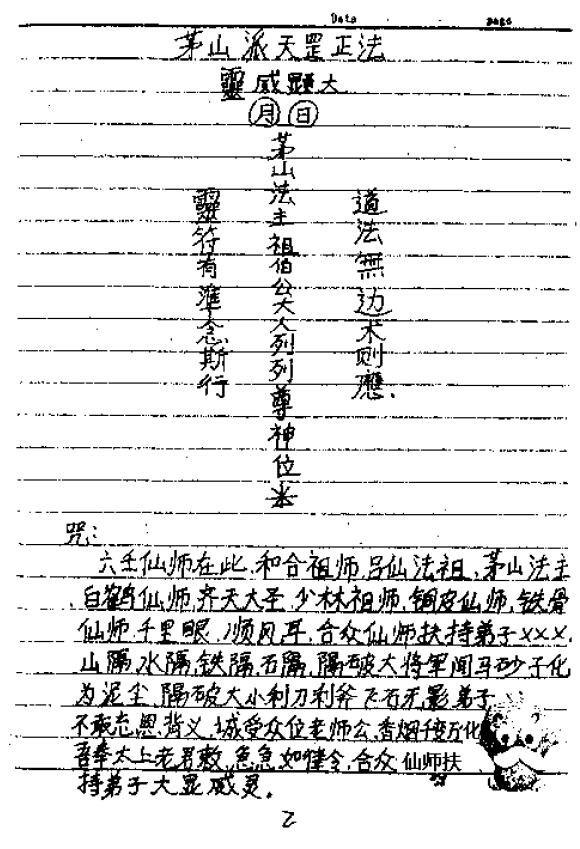 Date page
茅山派天罡正法
靈威顯大
月 日
道法無边术则應.
茅山法主祖伯公大人列列尊神位
靈符有準念斯行
咒:
六壬仙师在此,和合祖师,吕仙法祖,茅山法主
白鹤仙师,齐天大圣,少林祖师,铜皮仙师,铁骨
仙师,千里眼,顺风耳,合众仙师扶持弟子×××,
山隔,水隔,铁隔,石隔,隔破大将军闻马砂子化
为泥尘,隔破大小利刀利斧飞石无影,弟子
不敢忘恩背义,城受众位老师公,香烟千变万化
吾奉太上老君敕,急急如健令,合众仙师扶
持弟子大显威灵。
2